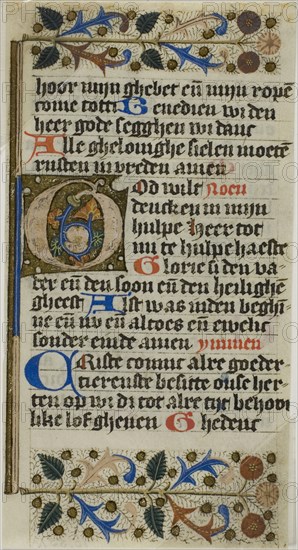 hoor mijn ghebet en̄ mijn ropē
come tot ti Ghenedien wi den
heer gode segghen wi danc
Alle ghelouighe sielen moetē
rusten in vreden amen
God wilt Noen
dencken in mijn
hulpe Heer tot
mi te hulpe haeste
Glorie si den va
ter en̄ den soon en̄ den heilighē
gheest Alst was inden beghī
ne en̄ nv en̄ altoes en̄ ewelic
sonder einde amen ymnen
Criste comic alre goeder
tierenste besitte onse her
ten op wi di tot alre tijt behou
like lof gheuen Ghedenc